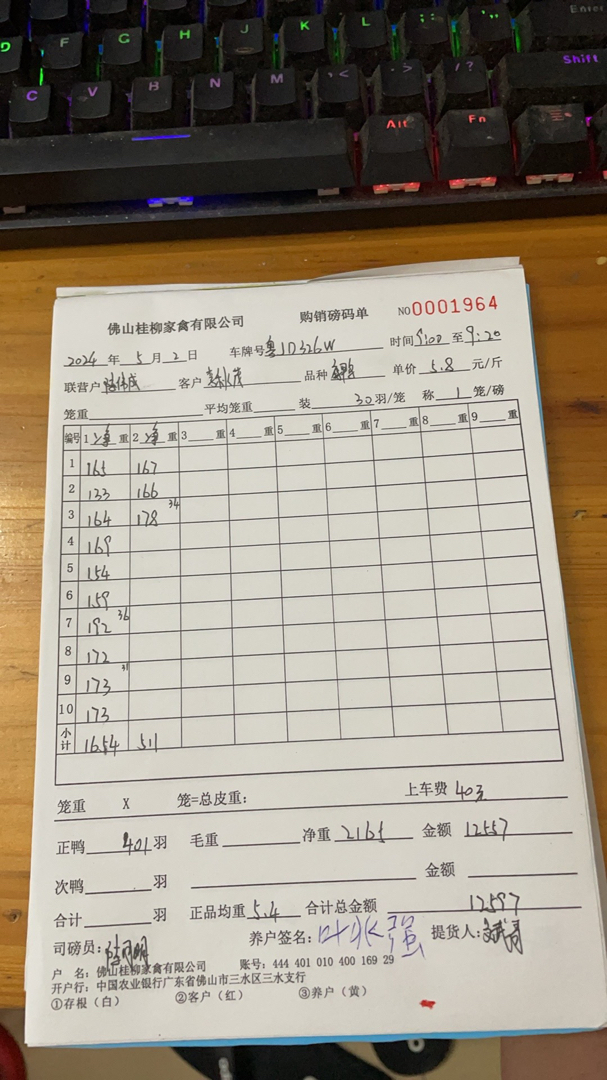 D F G H J K L : ; " ' Enter
C V B N M < , > . ? / Shift
Alt Fn
佛山桂柳家禽有限公司 购销磅码单 NO0001964
2024 年 5 月 2 日 车牌号 粤JD326W 时间 9:00 至 9:20
联营户 客户 品种 单价 5.8 元/斤
笼重 平均笼重 装 30 羽/笼 称 1 笼/磅
编号 1 净 重 2 净 重 3 重 4 重 5 重 6 重 7 重 8 重 9 重
1 165 167
2 133 166
3 164 178 34
4 169
5 154
6 159
7 192 36
8 172
9 173 31
10 173
小计 1654 511
笼重 X 笼=总皮重: 上车费 40元
正鸭 401 羽 毛重 净重 2165 金额 12557
次鸭 羽 金额
合计 羽 正品均重 5.4 合计总金额 12597
司磅员: 养户签名: 叶冰强 提货人:
户 名: 佛山桂柳家禽有限公司 账号: 444 401 010 400 169 29
开户行: 中国农业银行广东省佛山市三水区三水支行
①存根（白） ②客户（红） ③养户（黄）